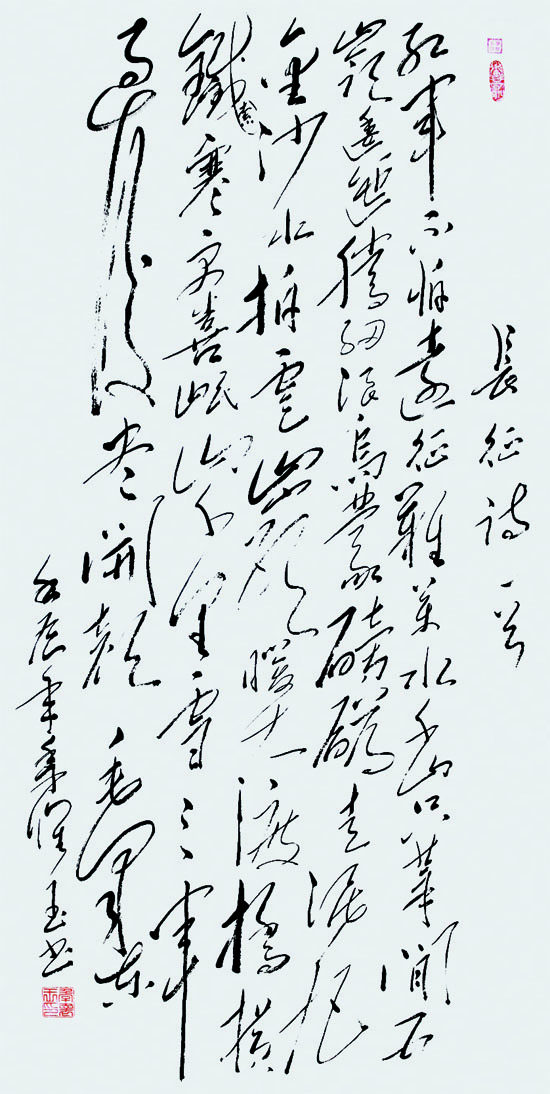 長征詩一首
紅軍不怕遠征難萬水千山只等閒五
嶺逶迤騰細浪烏蒙磅礴走泥丸
金沙水拍雲崖暖大渡橋橫
鐵索寒更喜岷山千里雪三軍
過後盡開顏 毛澤東
辰年 玉书